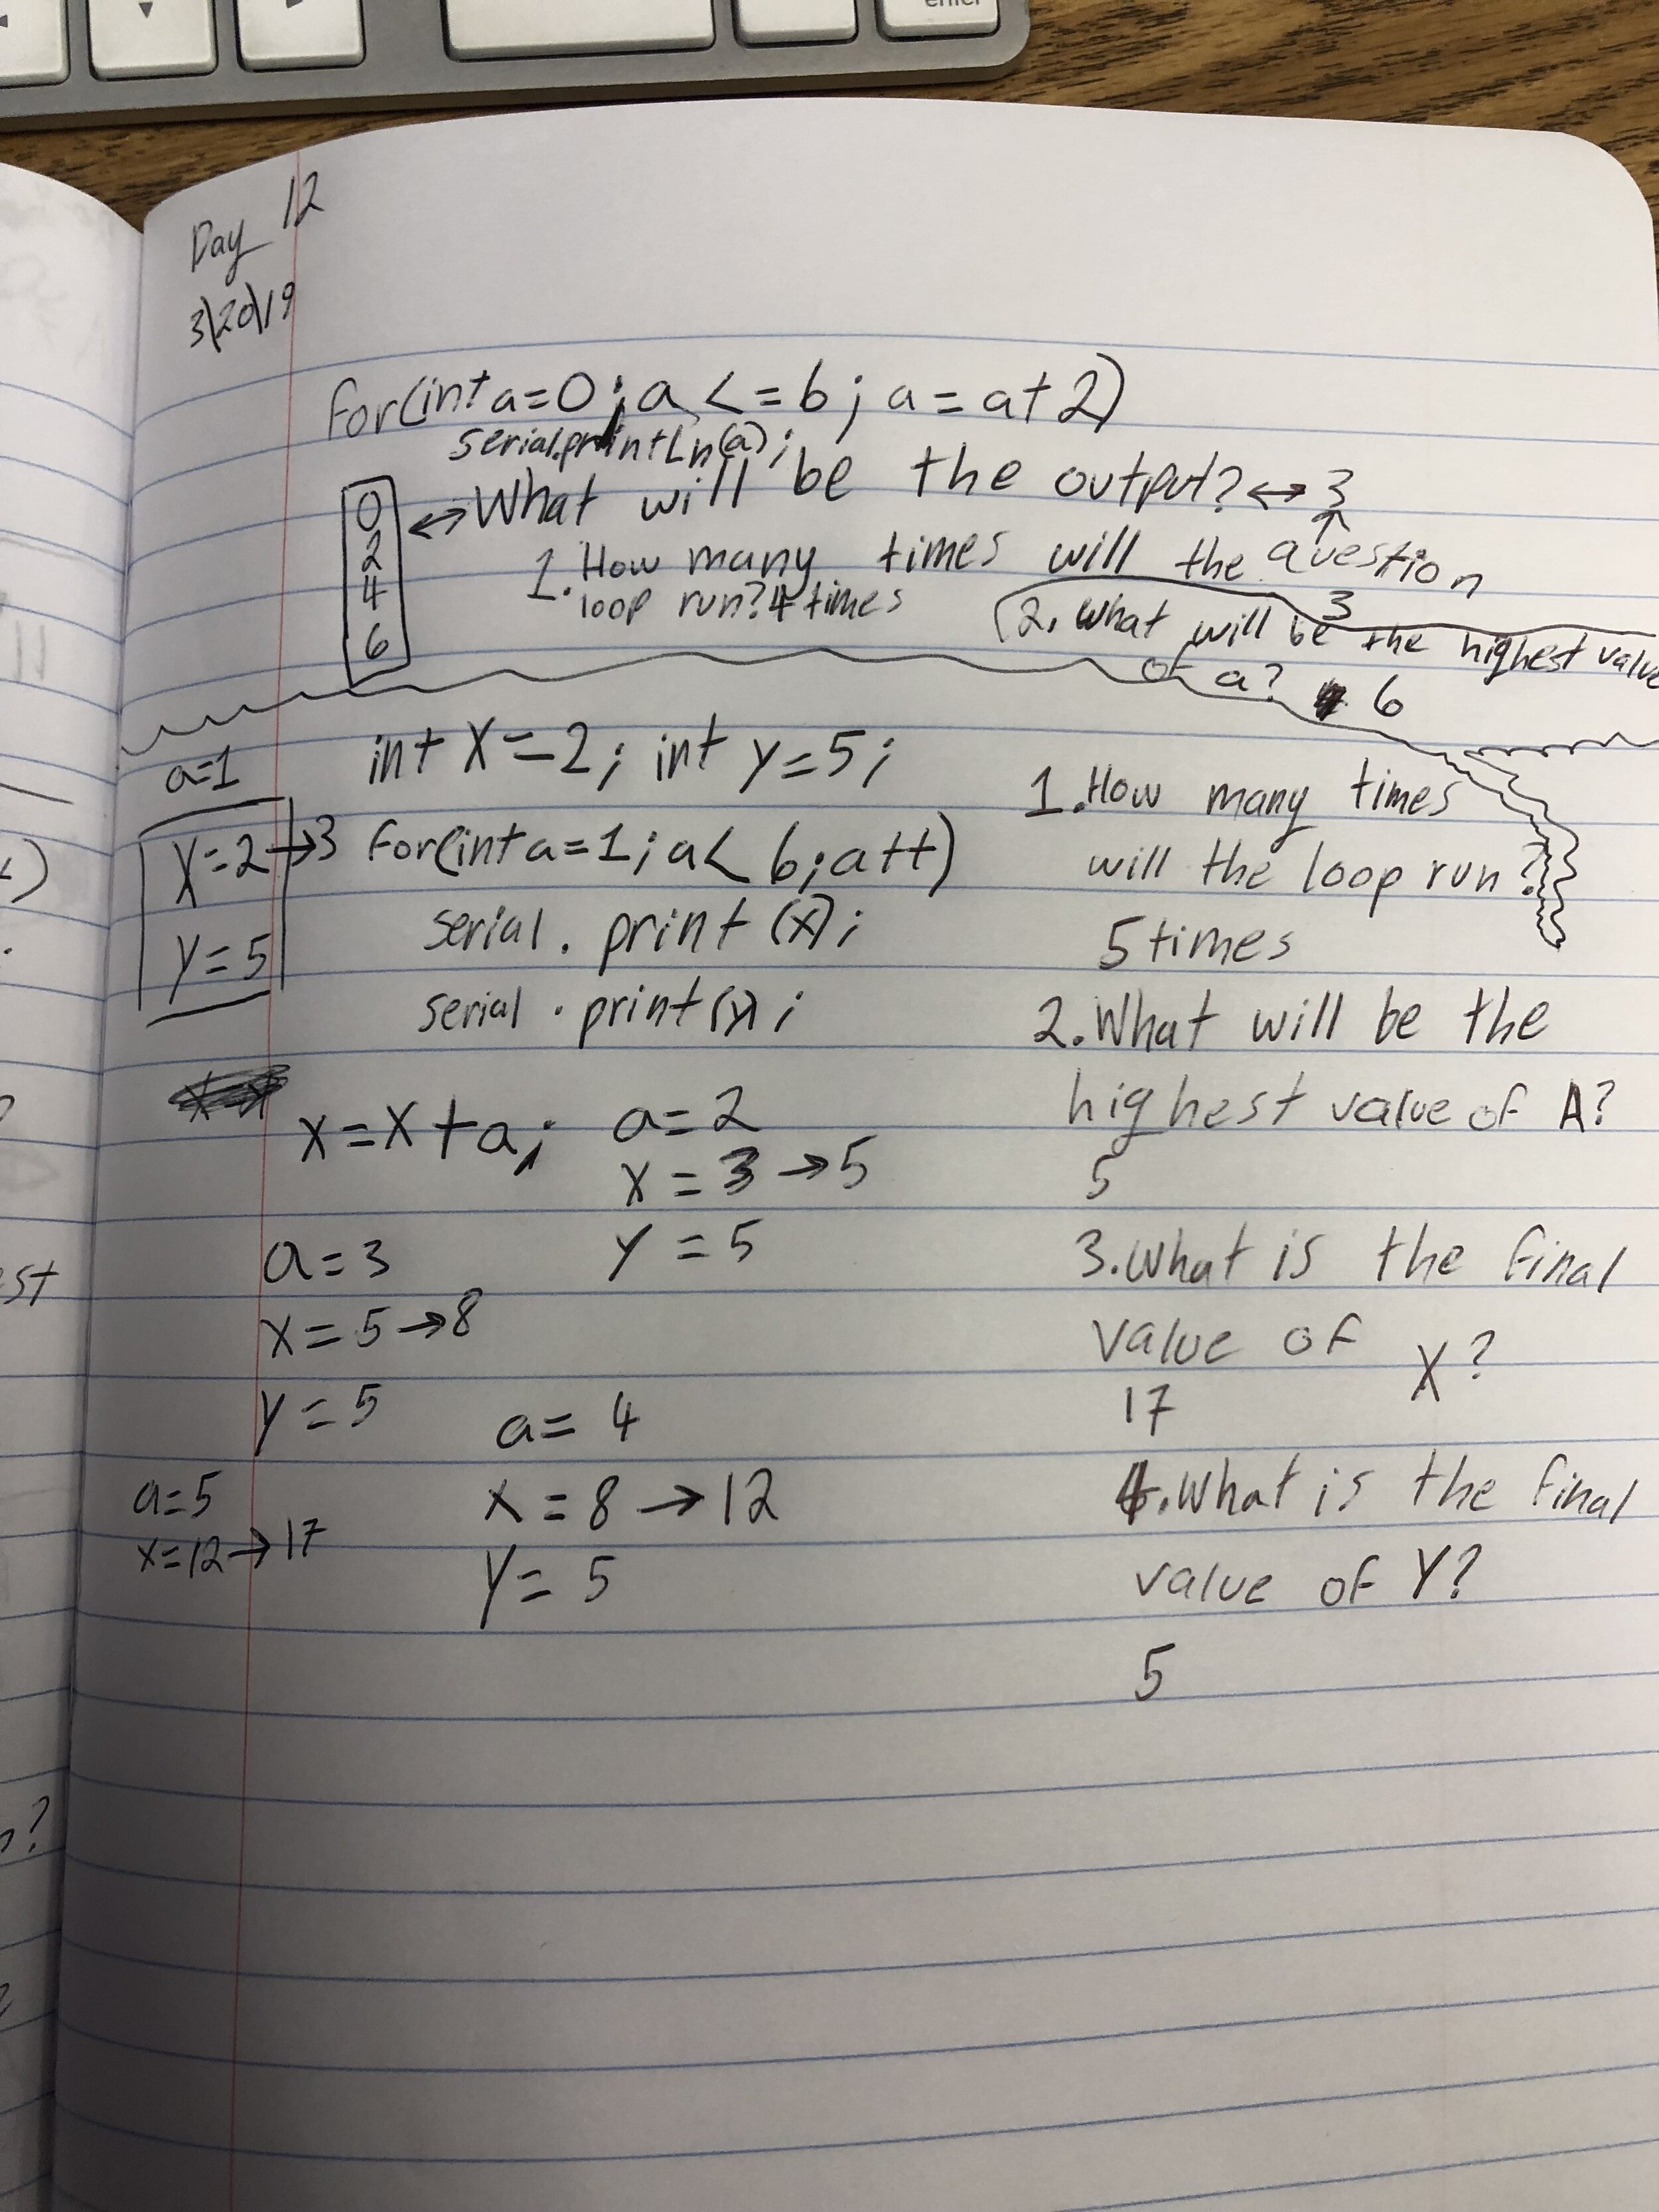 enter
Day 12
3\20\19
for(int a=0; a <= 6; a = a+2)
serial.printLn(a);
0
2
4
6
What will be the output? ↔ 3
question 3
1. How many times will the
loop run? 4 times
2. What will be the highest value
of a? 6
int X=2; int y=5;
for(int a=1; a< 6; a++)
serial. print (x);
serial . print(y);
x=x+a;
a=1
X=2→3
Y=5
a=2
x=3→5
y=5
a=3
x=5→8
y=5
a=4
x=8→12
y=5
a=5
x=12→17
1. How many times
will the loop run?
5 times
2. What will be the
highest value of A?
5
3. What is the final
value of X?
17
4. What is the final
value of Y?
5